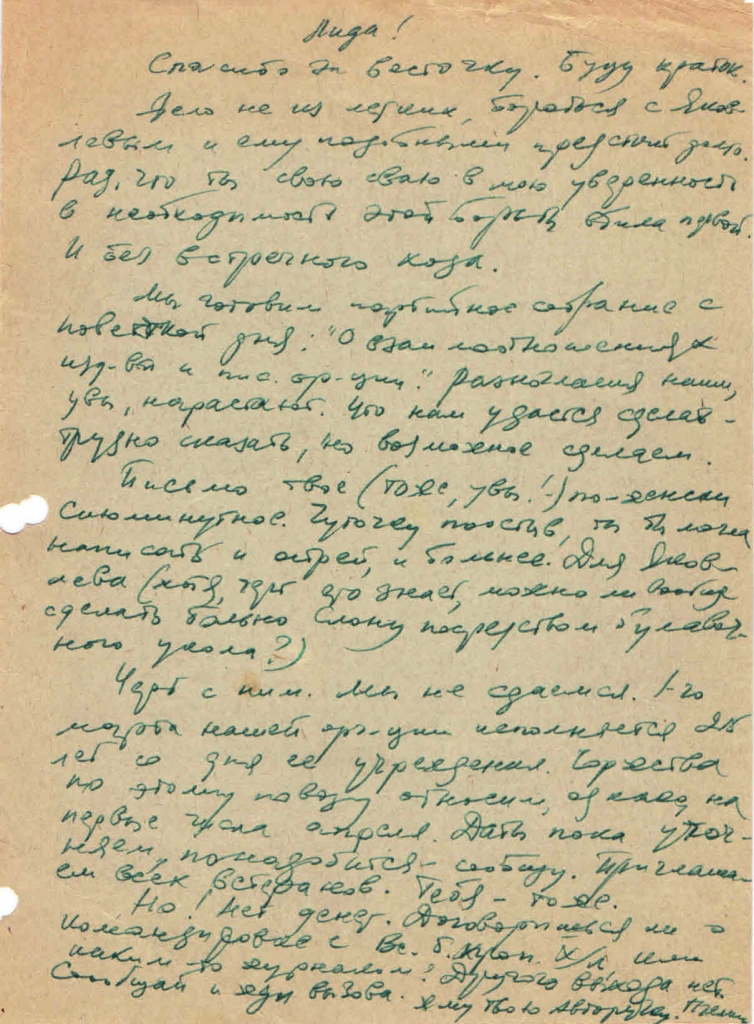 Лида!
Спасибо за весточку. Буду краток.
Дело не из легких, бороться с Яков-
левым и ему подобными предстоит долго.
Рад, что ты свою сваю в мою уверенность
в необходимость этой борьбы вбила первой.
И без встречного хода.
Мы готовим партийное собрание с
повесткой дня: "О взаимоотношениях
изд-ва и пис. ор-ции". Разногласия наши,
увы, нарастают. Что нам удастся сделать -
трудно сказать, но возможное сделаем.
Письмо твое (тоже, увы!-) по-женски
сиюминутное. Чуточку поостыв, ты бы могла
написать и острей, и больнее. Для Яков-
лева (хотя, черт его знает, можно ли вообще
сделать больно слону посредством булавоч-
ного укола?)
Черт с ним. Мы не сдаемся. 1-го
марта нашей орг-ции исполняется 25
лет со дня ее учреждения. Торжества
по этому поводу относим, однако, на
первые числа апреля. Даты пока уточ-
няем, понадобится - сообщу. Приглаша-
ем всех ветеранов. Тебя - тоже.
Но! Нет денег. Договоришься ли о
командировке с Вс. б. проп. х/л или
каким-то журналом? Другого выхода нет.
Сообщай и жди вызова. Жму твою авторучку.